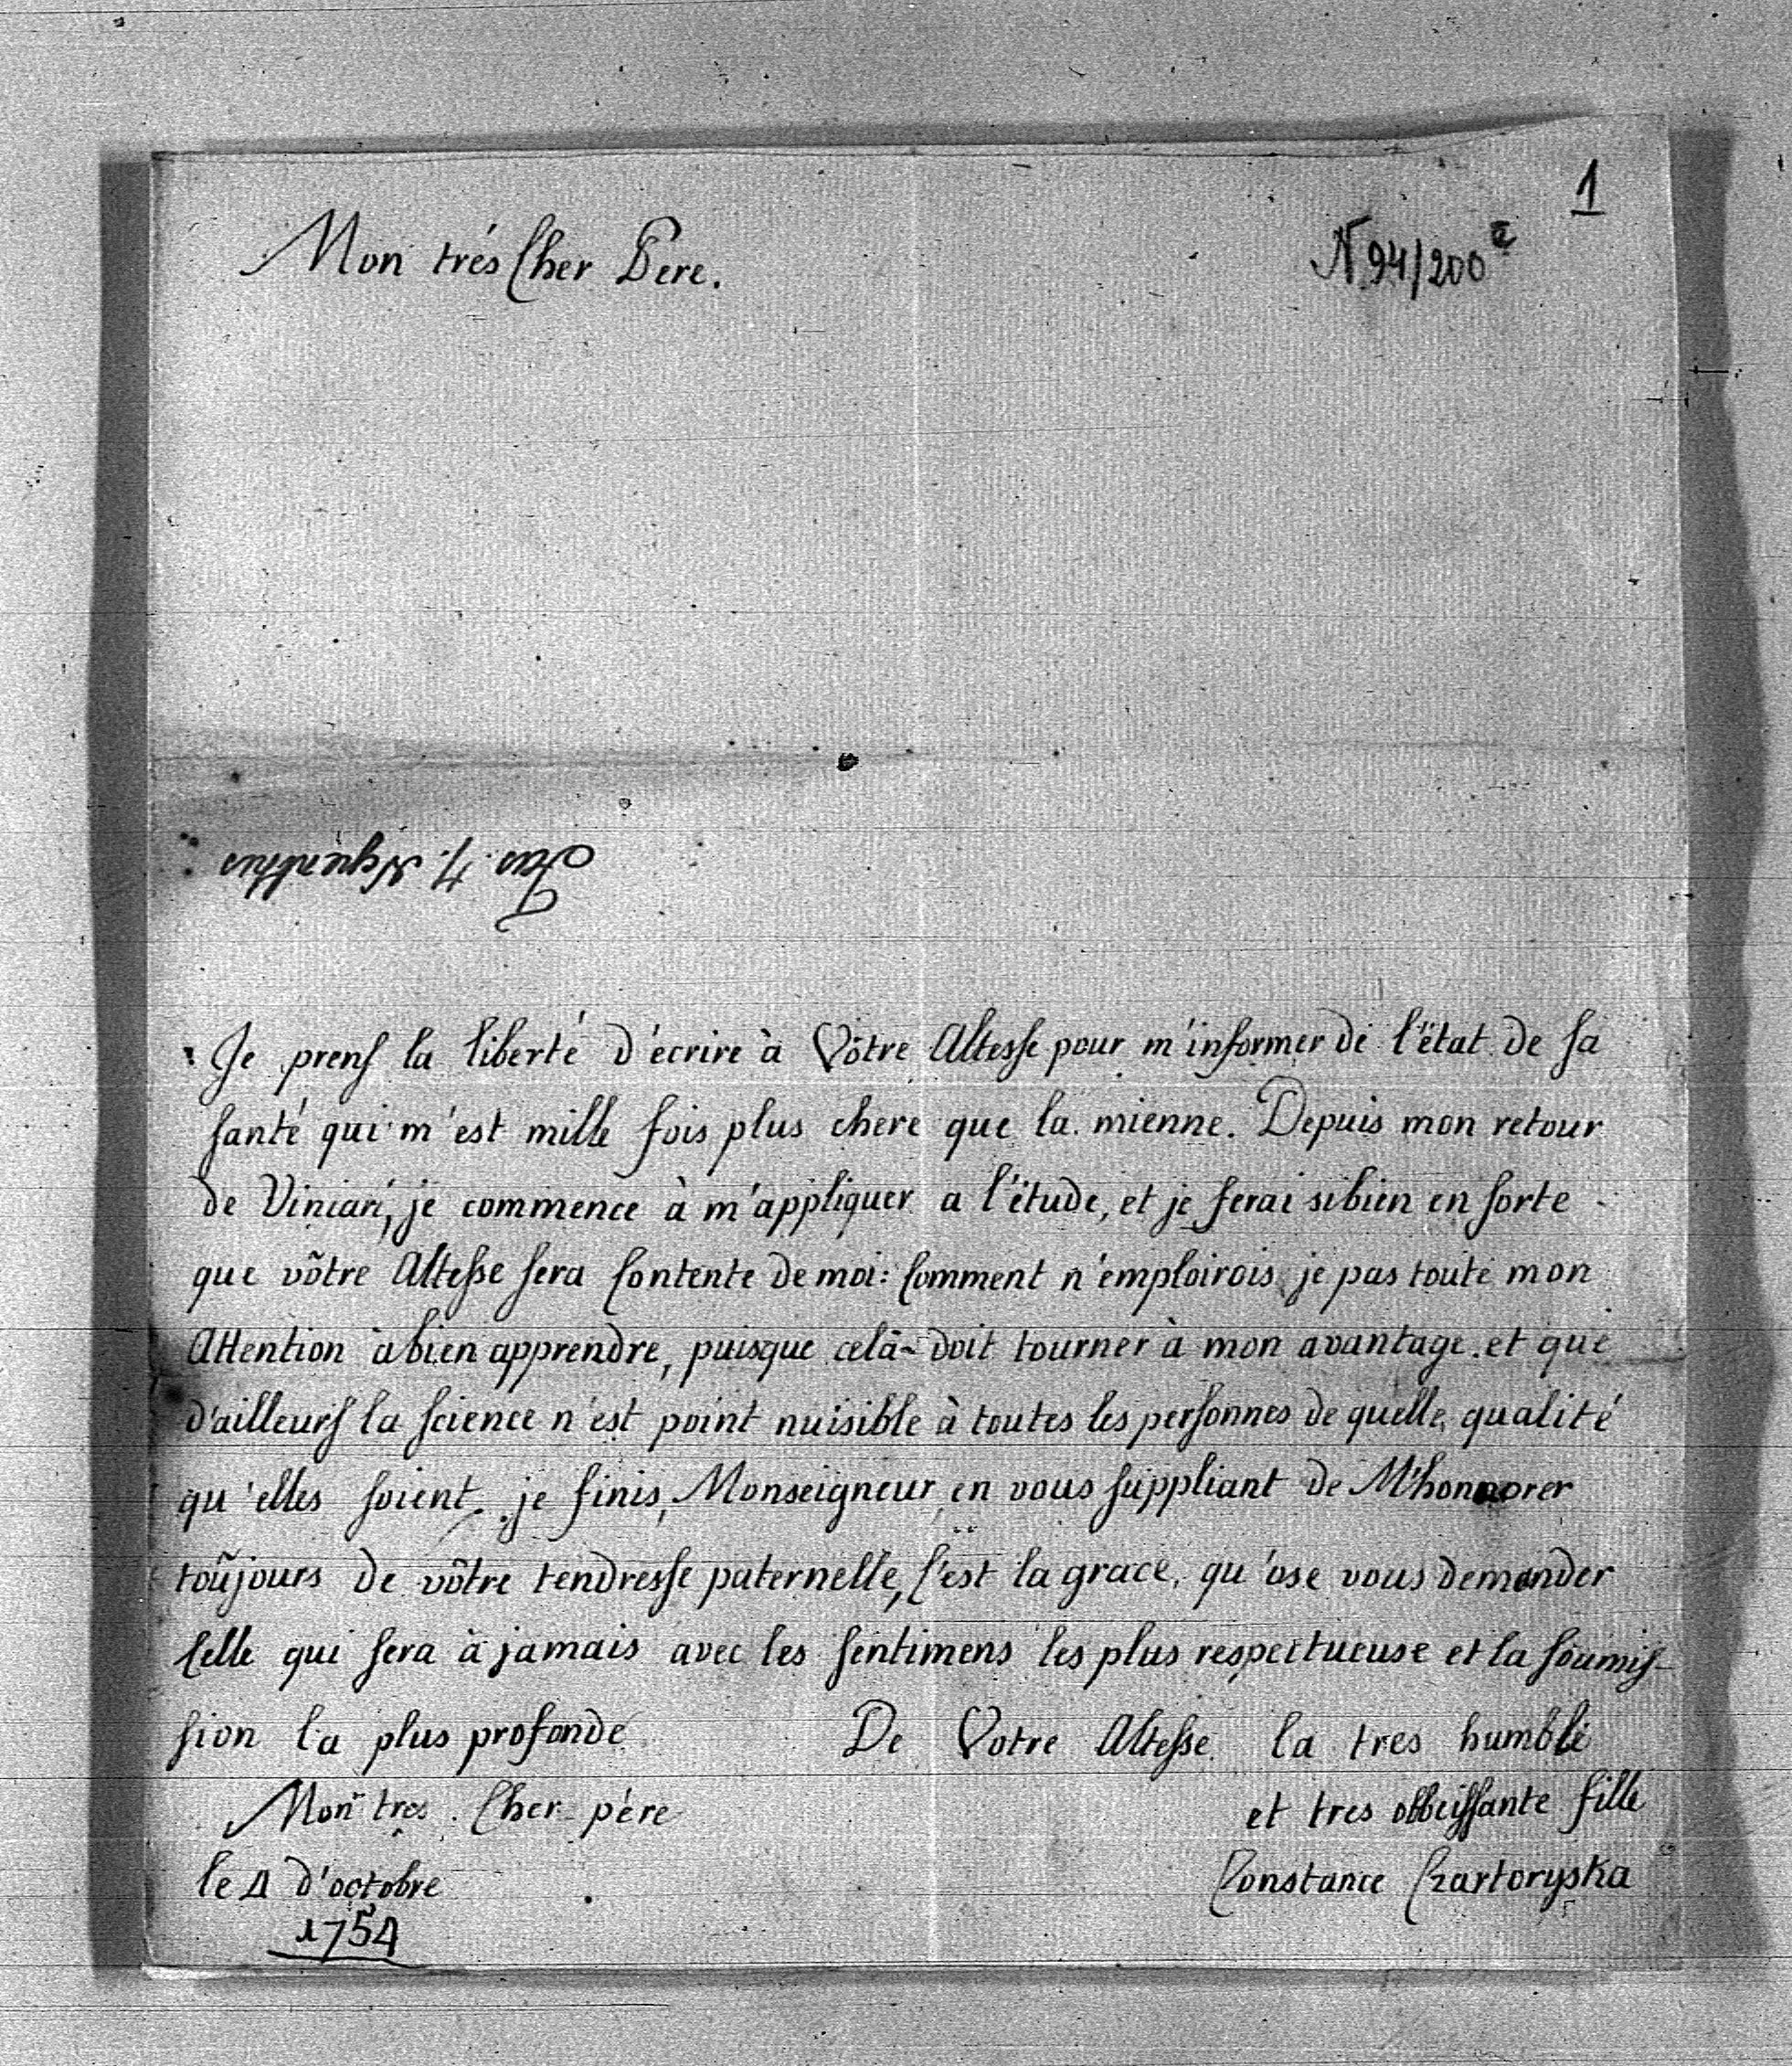 1
Mon trés Cher Pere.
N 94/200
Je prens la liberté d'écrire à Vôtre Altesse pour m'informer de l'état de sa
santé qui m'est mille fois plus chere que la mienne. Depuis mon retour
de Viniari, je commence à m'appliquer a l'étude, et je ferai sibien en sorte
que võtre Altesse sera Contente de moi: Comment n'emploirois je pas toute mon
Attention à bien apprendre, puisque celà doit tourner à mon avantage. et que
d'ailleurs la science n'est point nuisible à toutes les personnes de quelle qualité
qu'elles soient. je finis, Monseigneur en vous suppliant de M'honnorer
toûjours de vôtre tendresse paternelle, C'est la grace, qu'ose vous demander
Celle qui sera à jamais avec les sentimens les plus respectueuse et la soumis-
sion la plus profonde De Votre Altesse la tres humble
Mon tres Cher père et tres obbeissante fille
le 4 d'octobre Constance Czartoryska
1754